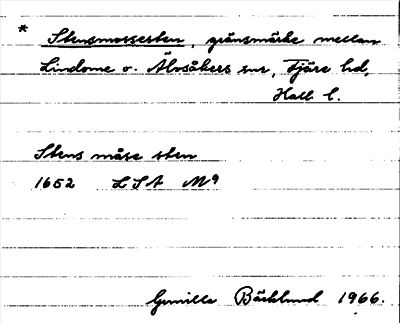 * Stensmossesten, gränsmärke mellan
Lindome o. Älvsåkers snr, Fjäre hd,
Hall. l.
Stens måse sten
1652 LSA M9
Gunilla Bäcklund 1966.